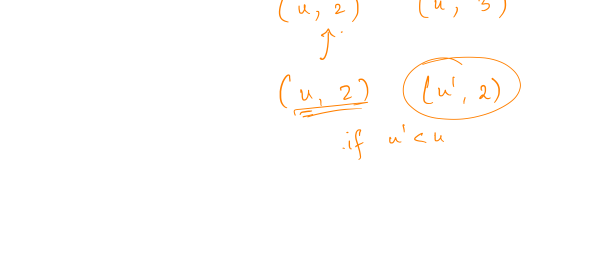 (u, 2) (u, 3)
(u, 2) (u', 2)
if u' < u